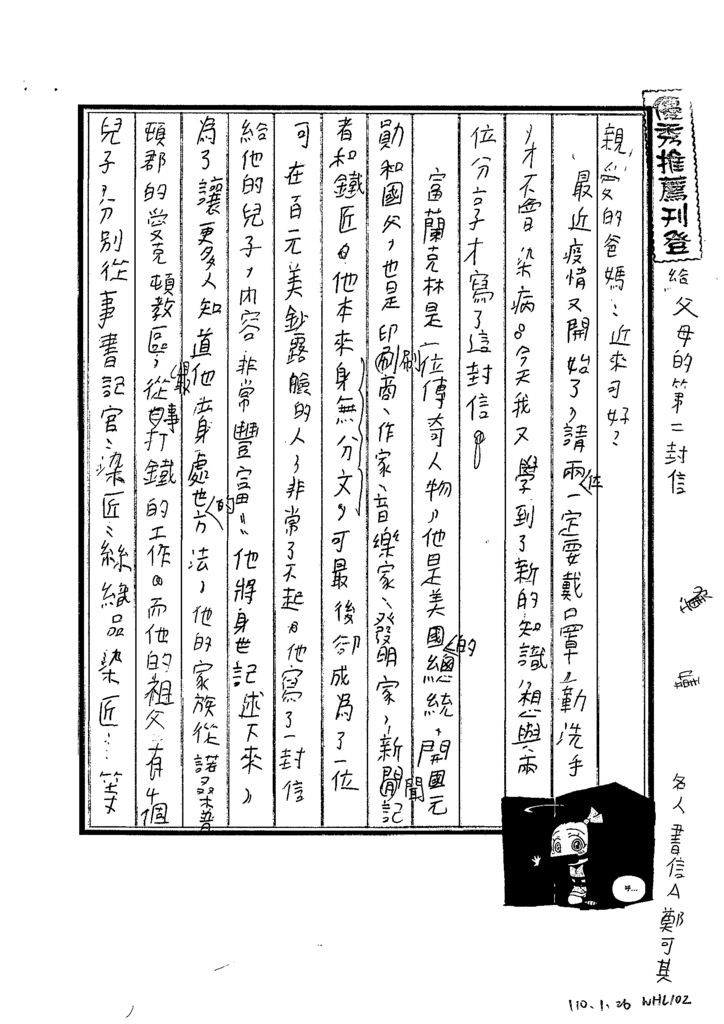 優秀推薦刊登
給父母的第二封信
名人書信A 鄭可其
親愛的爸媽:近來可好?
最近疫情又開始了,請兩位一定要戴口罩,勤洗手
,才不會染病。今天我又學到了新的知識,想與兩
位分享才寫了這封信。
富蘭克林是一位傳奇人物,他是美國的總統,開國元
勛和國父,也是印刷商、作家、音樂家、發明家,新聞記
者和鐵匠。他本來身無分文,可最後卻成為了一位
可在百元美鈔露臉的人,非常了不起。他寫了一封信
給他的兒子,內容非常豐富,他將身世記述下來,
為了讓更多人知道他當身處世的方法,他的家族從諾桑普
頓郡的愛克頓教區,從事打鐵的工作。而他的祖父有4個
兒子,分別從事書記官、染匠、絲織品染匠…等
呼...
110.1.26 WHL102